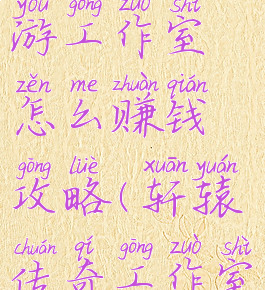 yóu gōng zuò shì
游工作室
zěn me zhuàn qián
怎么赚钱
gōng lüè xuān yuán
攻略(轩辕
chuán qí gōng zuò shì
传奇工作室